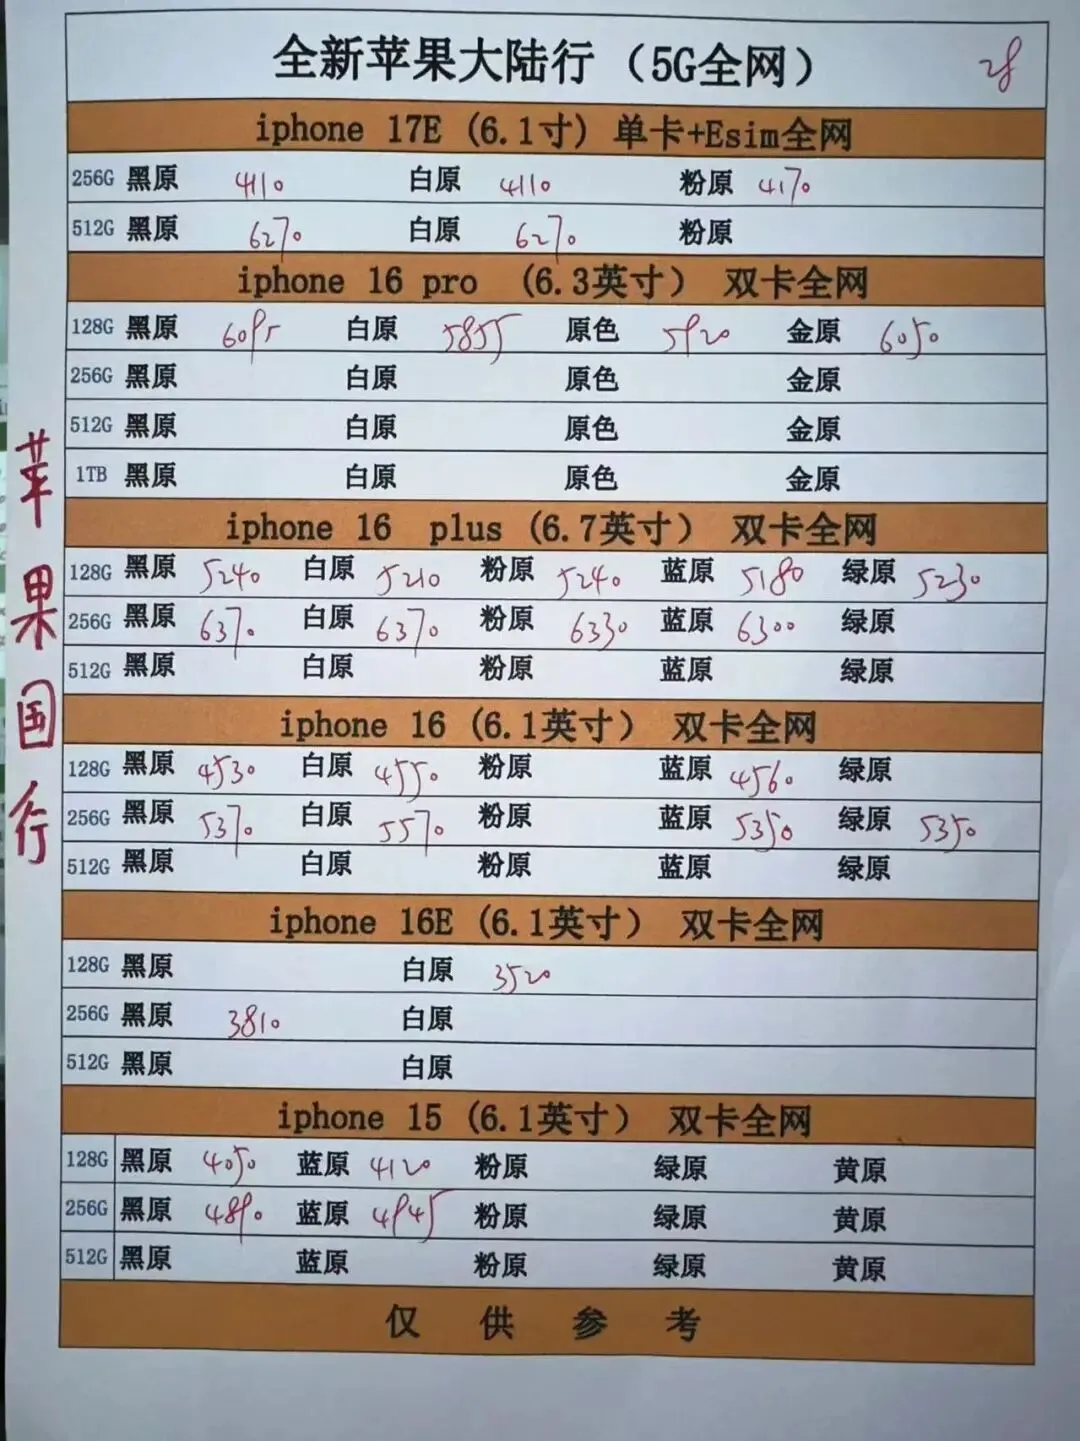 全新苹果大陆行（5G全网） 28
iphone 17E (6.1寸) 单卡+Esim全网
256G 黑原 4110 白原 4110 粉原 4170
512G 黑原 6270 白原 6270 粉原
iphone 16 pro (6.3英寸) 双卡全网
128G 黑原 6095 白原 5855 原色 5920 金原 6050
256G 黑原 白原 原色 金原
512G 黑原 白原 原色 金原
1TB 黑原 白原 原色 金原
iphone 16 plus (6.7英寸) 双卡全网
128G 黑原 5240 白原 5210 粉原 5240 蓝原 5180 绿原 5230
256G 黑原 6370 白原 6370 粉原 6330 蓝原 6300 绿原
512G 黑原 白原 粉原 蓝原 绿原
iphone 16 (6.1英寸) 双卡全网
128G 黑原 4530 白原 4550 粉原 蓝原 4560 绿原
256G 黑原 5370 白原 5570 粉原 蓝原 5350 绿原 5350
512G 黑原 白原 粉原 蓝原 绿原
iphone 16E (6.1英寸) 双卡全网
128G 黑原 白原 3520
256G 黑原 3810 白原
512G 黑原 白原
iphone 15 (6.1英寸) 双卡全网
128G 黑原 4050 蓝原 4120 粉原 绿原 黄原
256G 黑原 4890 蓝原 4945 粉原 绿原 黄原
512G 黑原 蓝原 粉原 绿原 黄原
仅供参考
苹果国行